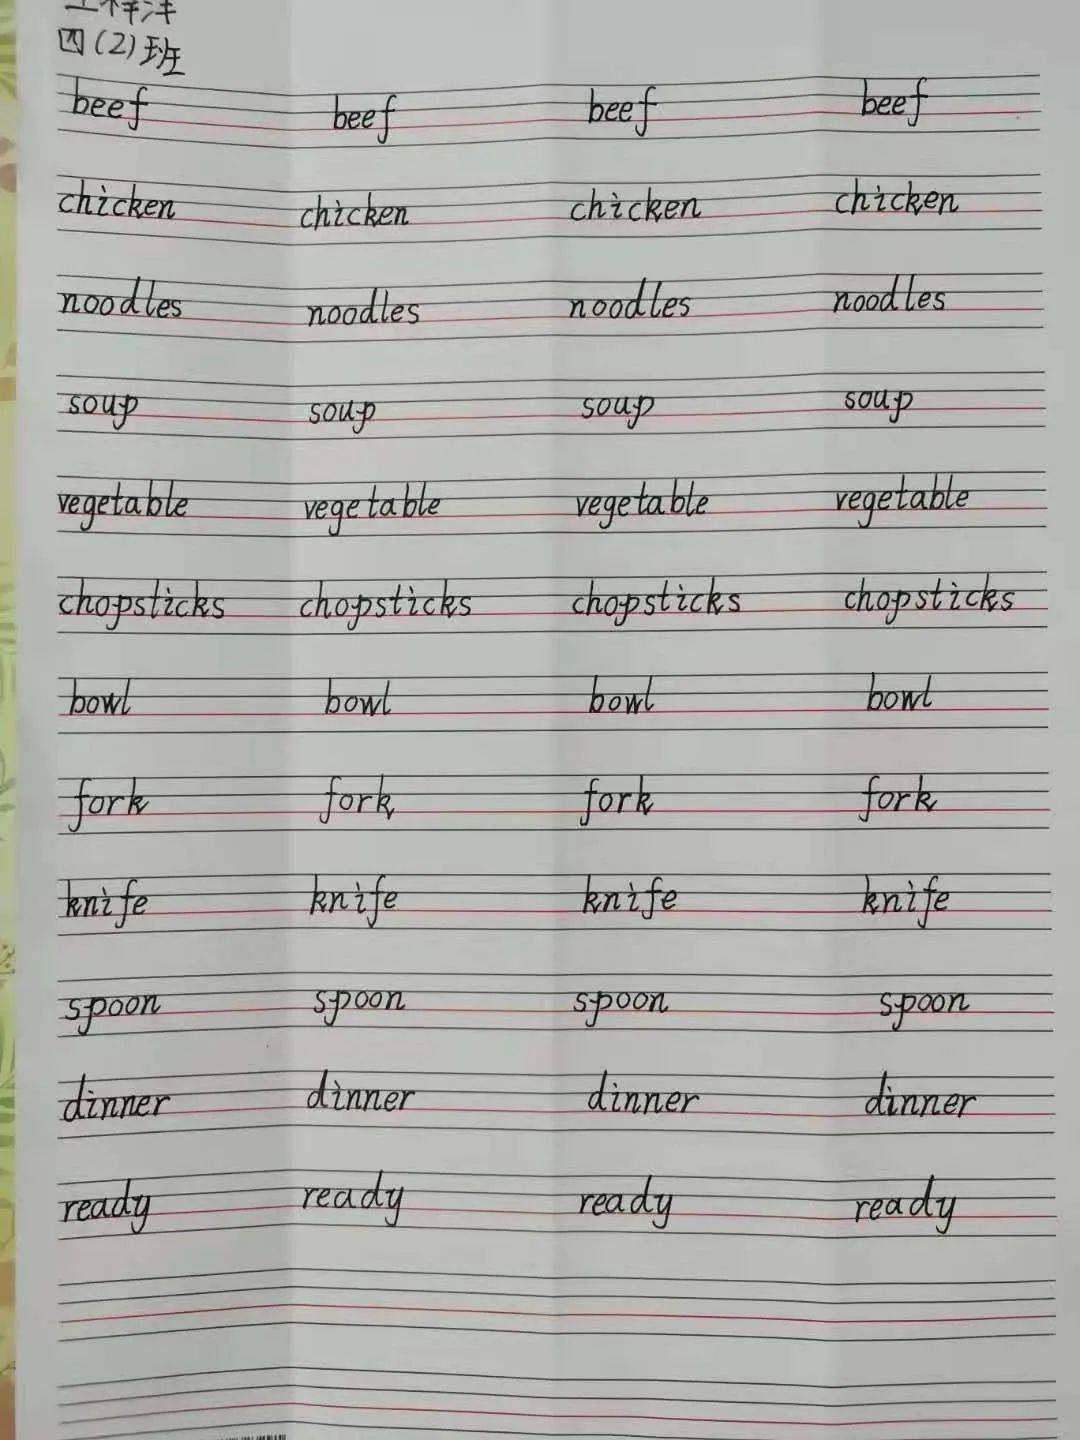 四(2)班
beef beef beef beef
chicken chicken chicken chicken
noodles noodles noodles noodles
soup soup soup soup
vegetable vegetable vegetable vegetable
chopsticks chopsticks chopsticks chopsticks
bowl bowl bowl bowl
fork fork fork fork
knife knife knife knife
spoon spoon spoon spoon
dinner dinner dinner dinner
ready ready ready ready